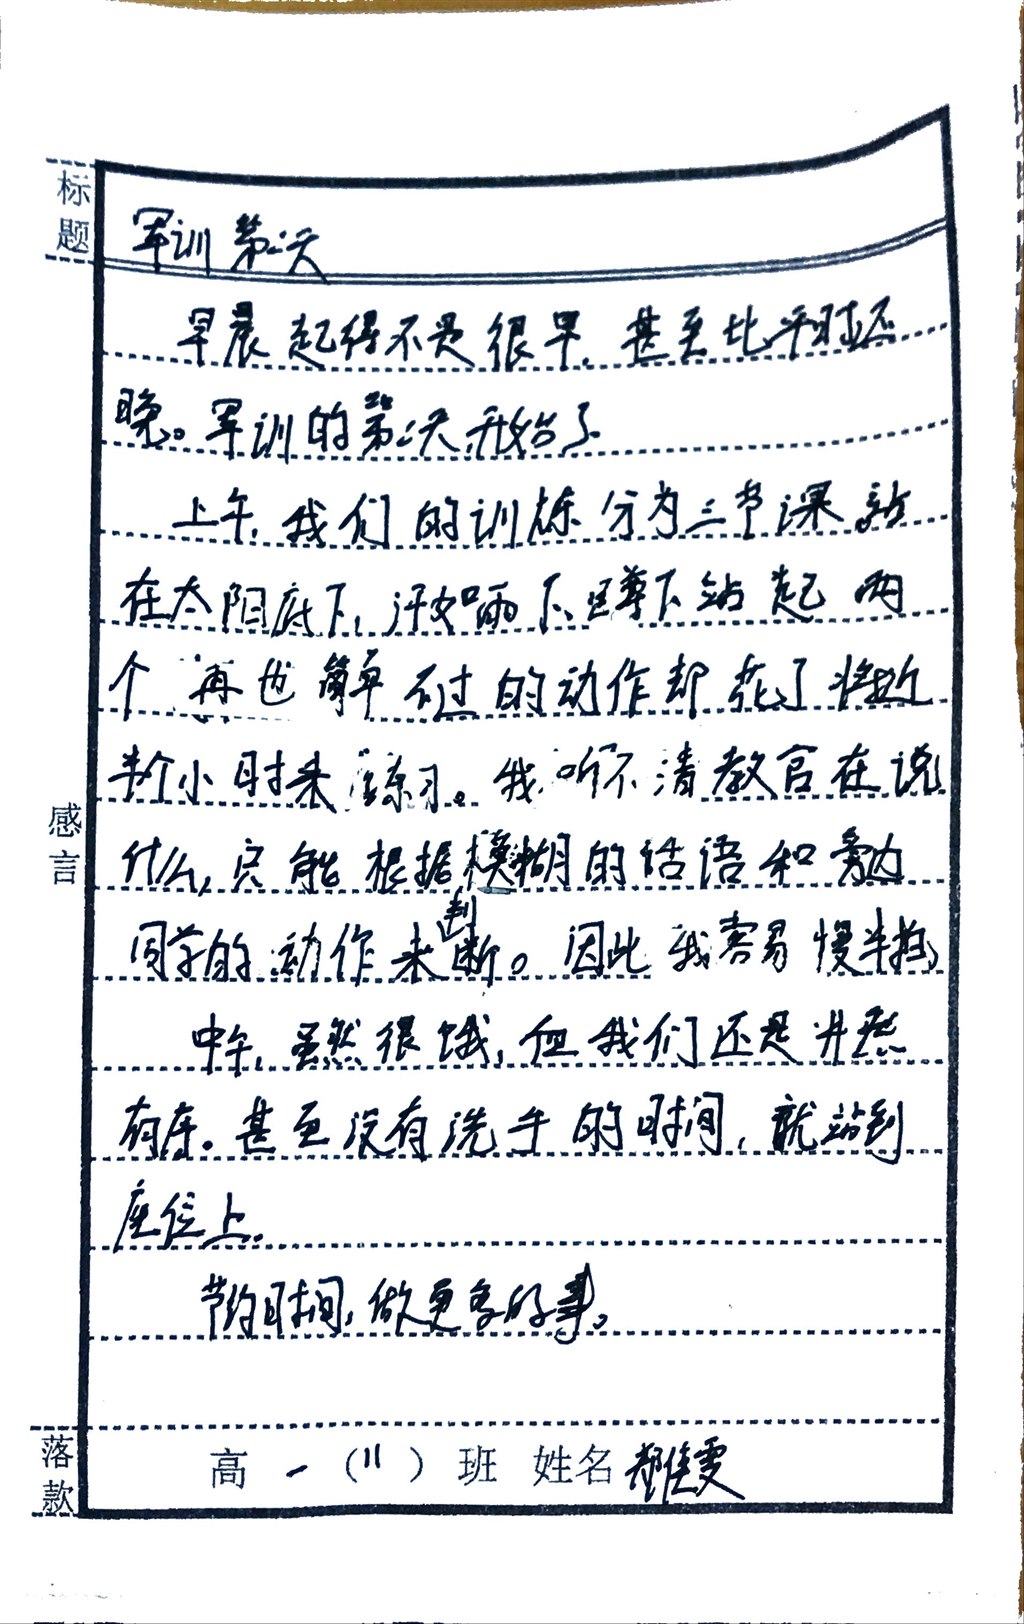 标题
军训第二天
早晨起得不是很早,甚至比平时还
晚。军训的第二天开始了.
上午,我们的训练分为三节课.站
在太阳底下,汗如雨下.蹲下站起两
个再也简单不过的动作却花了将近
半个小时来练习。我听不清教官在说
什么,只能根据模糊的话语和旁边
同学的动作来判断。因此我容易慢半拍,
中午,虽然很饿,但我们还是井然
有序。甚至没有洗手的时间,就站到
座位上.
节约时间,做更多的事。
感言
落款
高一(11)班 姓名